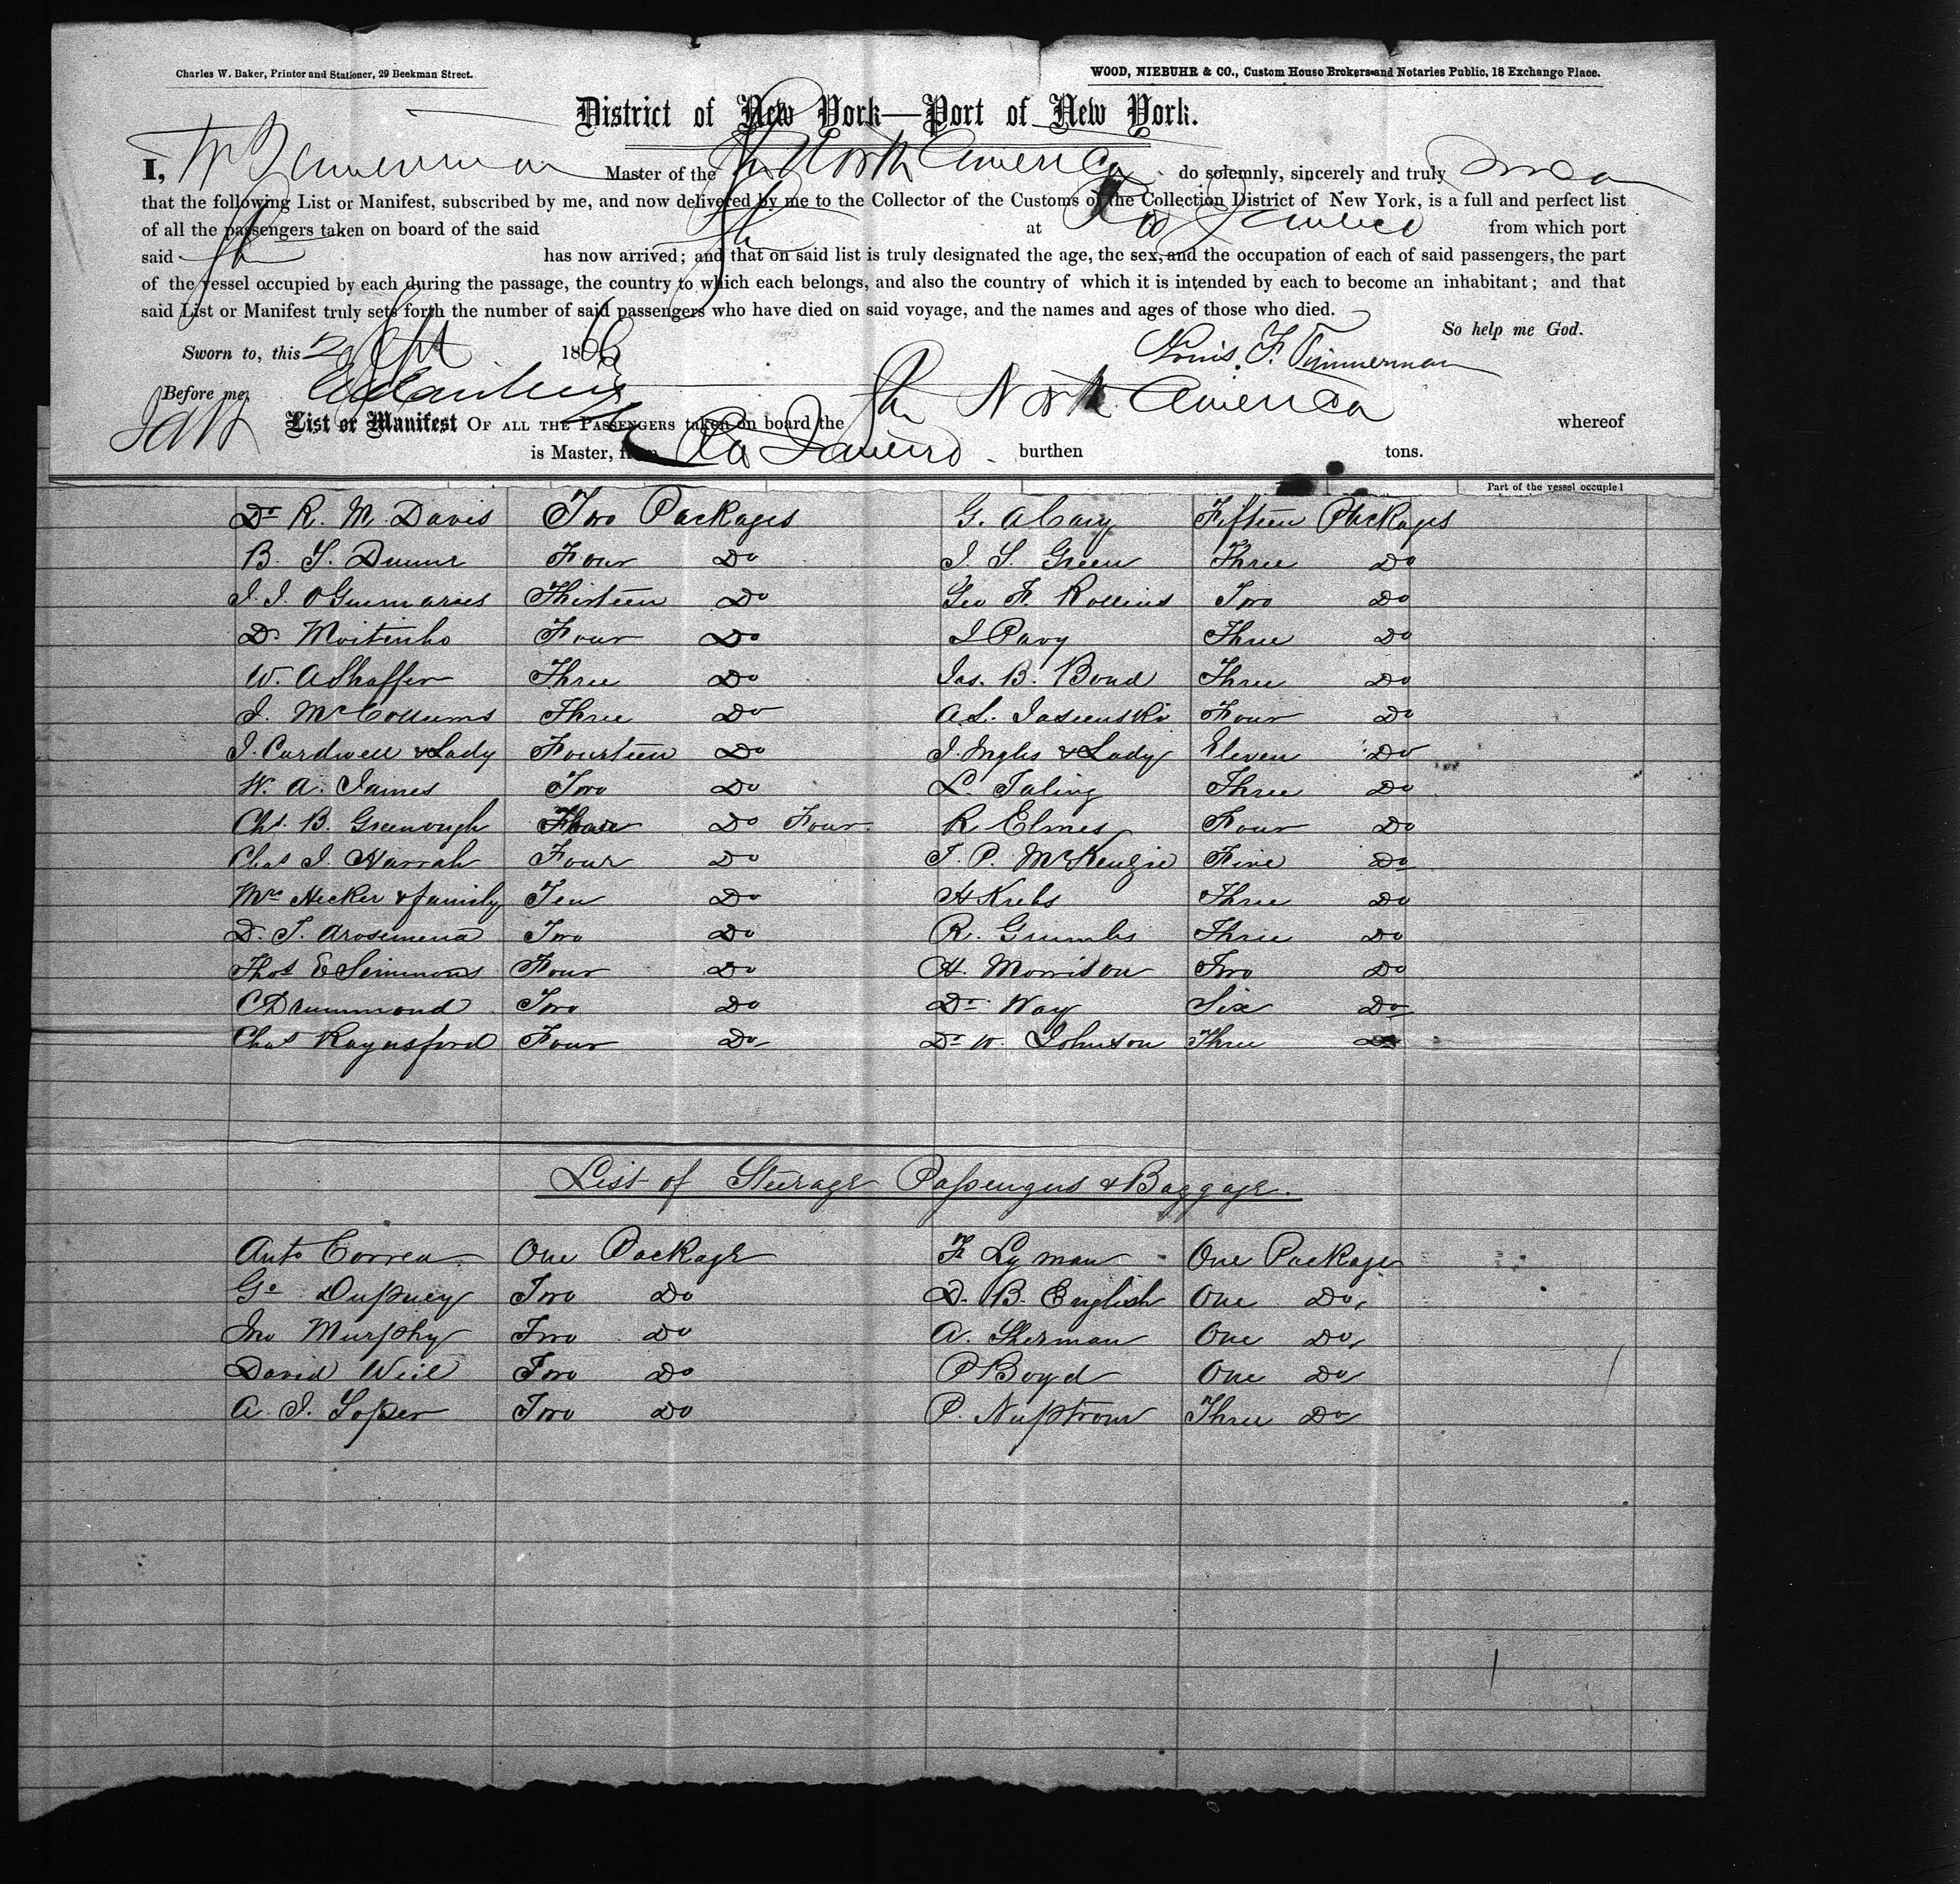 Charles W. Baker, Printer and Stationer, 29 Beekman Street.
WOOD, NIEBUHR & CO., Custom House Brokers and Notaries Public, 18 Exchange Place.
District of New York—Port of New York.
I, Timmerman Master of the Str North America do solemnly, sincerely and truly swear
that the following List or Manifest, subscribed by me, and now delivered by me to the Collector of the Customs of the Collection District of New York, is a full and perfect list
of all the passengers taken on board of the said Str at Rio Janeiro from which port
said Str has now arrived; and that on said list is truly designated the age, the sex, and the occupation of each of said passengers, the part
of the vessel occupied by each during the passage, the country to which each belongs, and also the country of which it is intended by each to become an inhabitant; and that
said List or Manifest truly sets forth the number of said passengers who have died on said voyage, and the names and ages of those who died.
So help me God.
Sworn to, this 2 Sept 1866
Louis. F. Timmerman
Before me,
List or Manifest OF ALL THE PASSENGERS taken on board the Str North America whereof
is Master, from Rio Janeiro burthen tons.
Part of the vessel occupied
Dr R. M. Davis Two Packages G. A Cary Fifteen Packages
B. F. Four Do J. S. Green Three Do
J. J. Thirteen Do Geo F. Rollins Two Do
D. Moitinho Four Do J Pavy Three Do
W. A Shaffer Three Do Jas. B. Bond Three Do
J. McCollums Three Do A. L. Jasienski Four Do
J. Cardwell & Lady Fourteen Do J. Ingles & Lady Eleven Do
W. A. James Two Do L. Three Do
Chs. B. Greenough Do Four R Elmes Four Do
Chas J. Harrah Four Do J. P. McKenzie Five Do
Mrs Hecker & family Ten Do H Krebs Three Do
D. J. Arosemena Two Do R. Three Do
Thos E Simmons Four Do H. Morrison Two Do
C Drummond Two Do Dr Way Six Do
Chas Raynsford Four Do Dr W. Johnson Three Do
List of Steerage Passengers & Baggage.
Anto Correa One Package F Lyman One Package
Two Do D. B. English One Do,
Jno Murphy Two Do A. Sherman One Do,
David Weil Two Do P Boyd One Do
A. J. Two Do P. Three Do